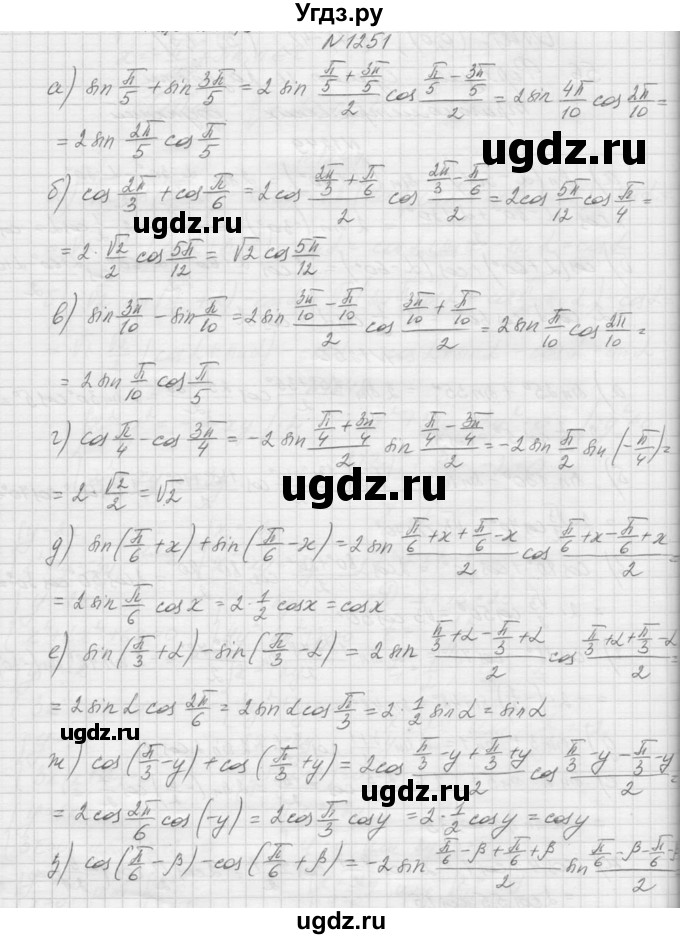 Угдз.ру
№1251
а) sin π/5 + sin 3π/5 = 2 sin (π/5 + 3π/5)/2 cos (π/5 − 3π/5)/2 = 2sin 4π/10 cos 2π/10 =
= 2 sin 2π/5 cos π/5
ugdz.ru
ugdz.ru
б) cos 2π/3 + cos π/6 = 2cos (2π/3 + π/6)/2 cos (2π/3 − π/6)/2 = 2cos 5π/12 cos π/4 =
= 2 · √2/2 cos 5π/12 = √2 cos 5π/12
ugdz.ru
в) sin 3π/10 − sin π/10 = 2 sin (3π/10 − π/10)/2 cos (3π/10 + π/10)/2 = 2 sin π/10 cos 2π/10 =
= 2 sin π/10 cos π/5
ugdz.ru
г) cos π/4 − cos 3π/4 = −2 sin (π/4 + 3π/4)/2 sin (π/4 − 3π/4)/2 = −2 sin π/2 sin (−π/4) =
= 2 · √2/2 = √2
ugdz.ru
д) sin(π/6 + x) + sin(π/6 − x) = 2 sin (π/6 + x + π/6 − x)/2 cos (π/6 + x − π/6 + x)/2 =
= 2 sin π/6 cos x = 2 · 1/2 cos x = cos x
ugdz.ru
е) sin(π/3 + α) − sin(π/3 − α) = 2 sin (π/3 + α − π/3 + α)/2 cos (π/3 + α + π/3 − α)/2 =
= 2 sin α cos 2π/6 = 2 sin α cos π/3 = 2 · 1/2 sin α = sin α
ugdz.ru
ugdz.ru
ж) cos(π/3 − y) + cos(π/3 + y) = 2cos (π/3 − y + π/3 + y)/2 cos (π/3 − y − π/3 − y)/2 =
= 2 cos 2π/6 cos(−y) = 2 cos π/3 cos y = 2 · 1/2 cos y = cos y
ugdz.ru
з) cos(π/6 − β) − cos(π/6 + β) = −2 sin (π/6 − β + π/6 + β)/2 sin (π/6 − β − π/6 −
ugdz.ru